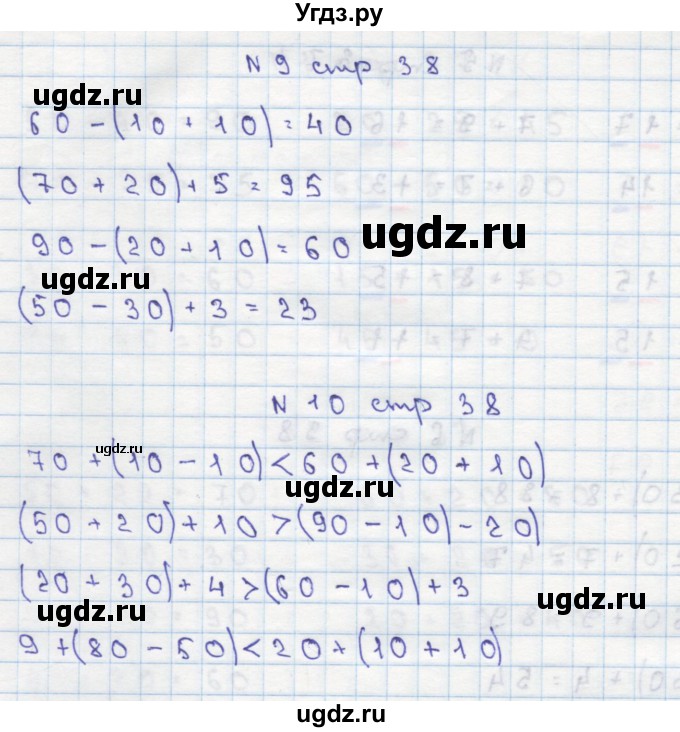 Угдз.ру
N 9 стр 38
ugdz.ru
60 - (10 + 10) = 40
(70 + 20) + 5 = 95
ugdz.ru
90 - (20 + 10) = 60
ugdz.ru
(50 - 30) + 3 = 23
N 10 стр 38
ugdz.ru
70 + (10 - 10) < 60 + (20 + 10)
ugdz.ru
(50 + 20) + 10 > (90 - 10) - 20)
(20 + 30) + 4 > (60 - 10) + 3
ugdz.ru
ugdz.ru
9 + (80 - 50) < 20 + (10 + 10)
ugdz.ru